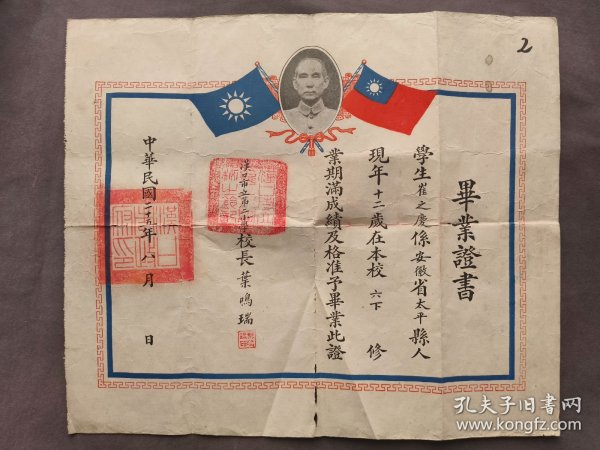 2
畢業證書
學生崔之慶係安徽省太平縣人
現年十二歲在本校六下修
業期滿成績及格准予畢業此證
漢口市立第二小學校長葉鳴瑞
中華民國二十六年八月 日
孔夫子旧书网
www.kongfz.com